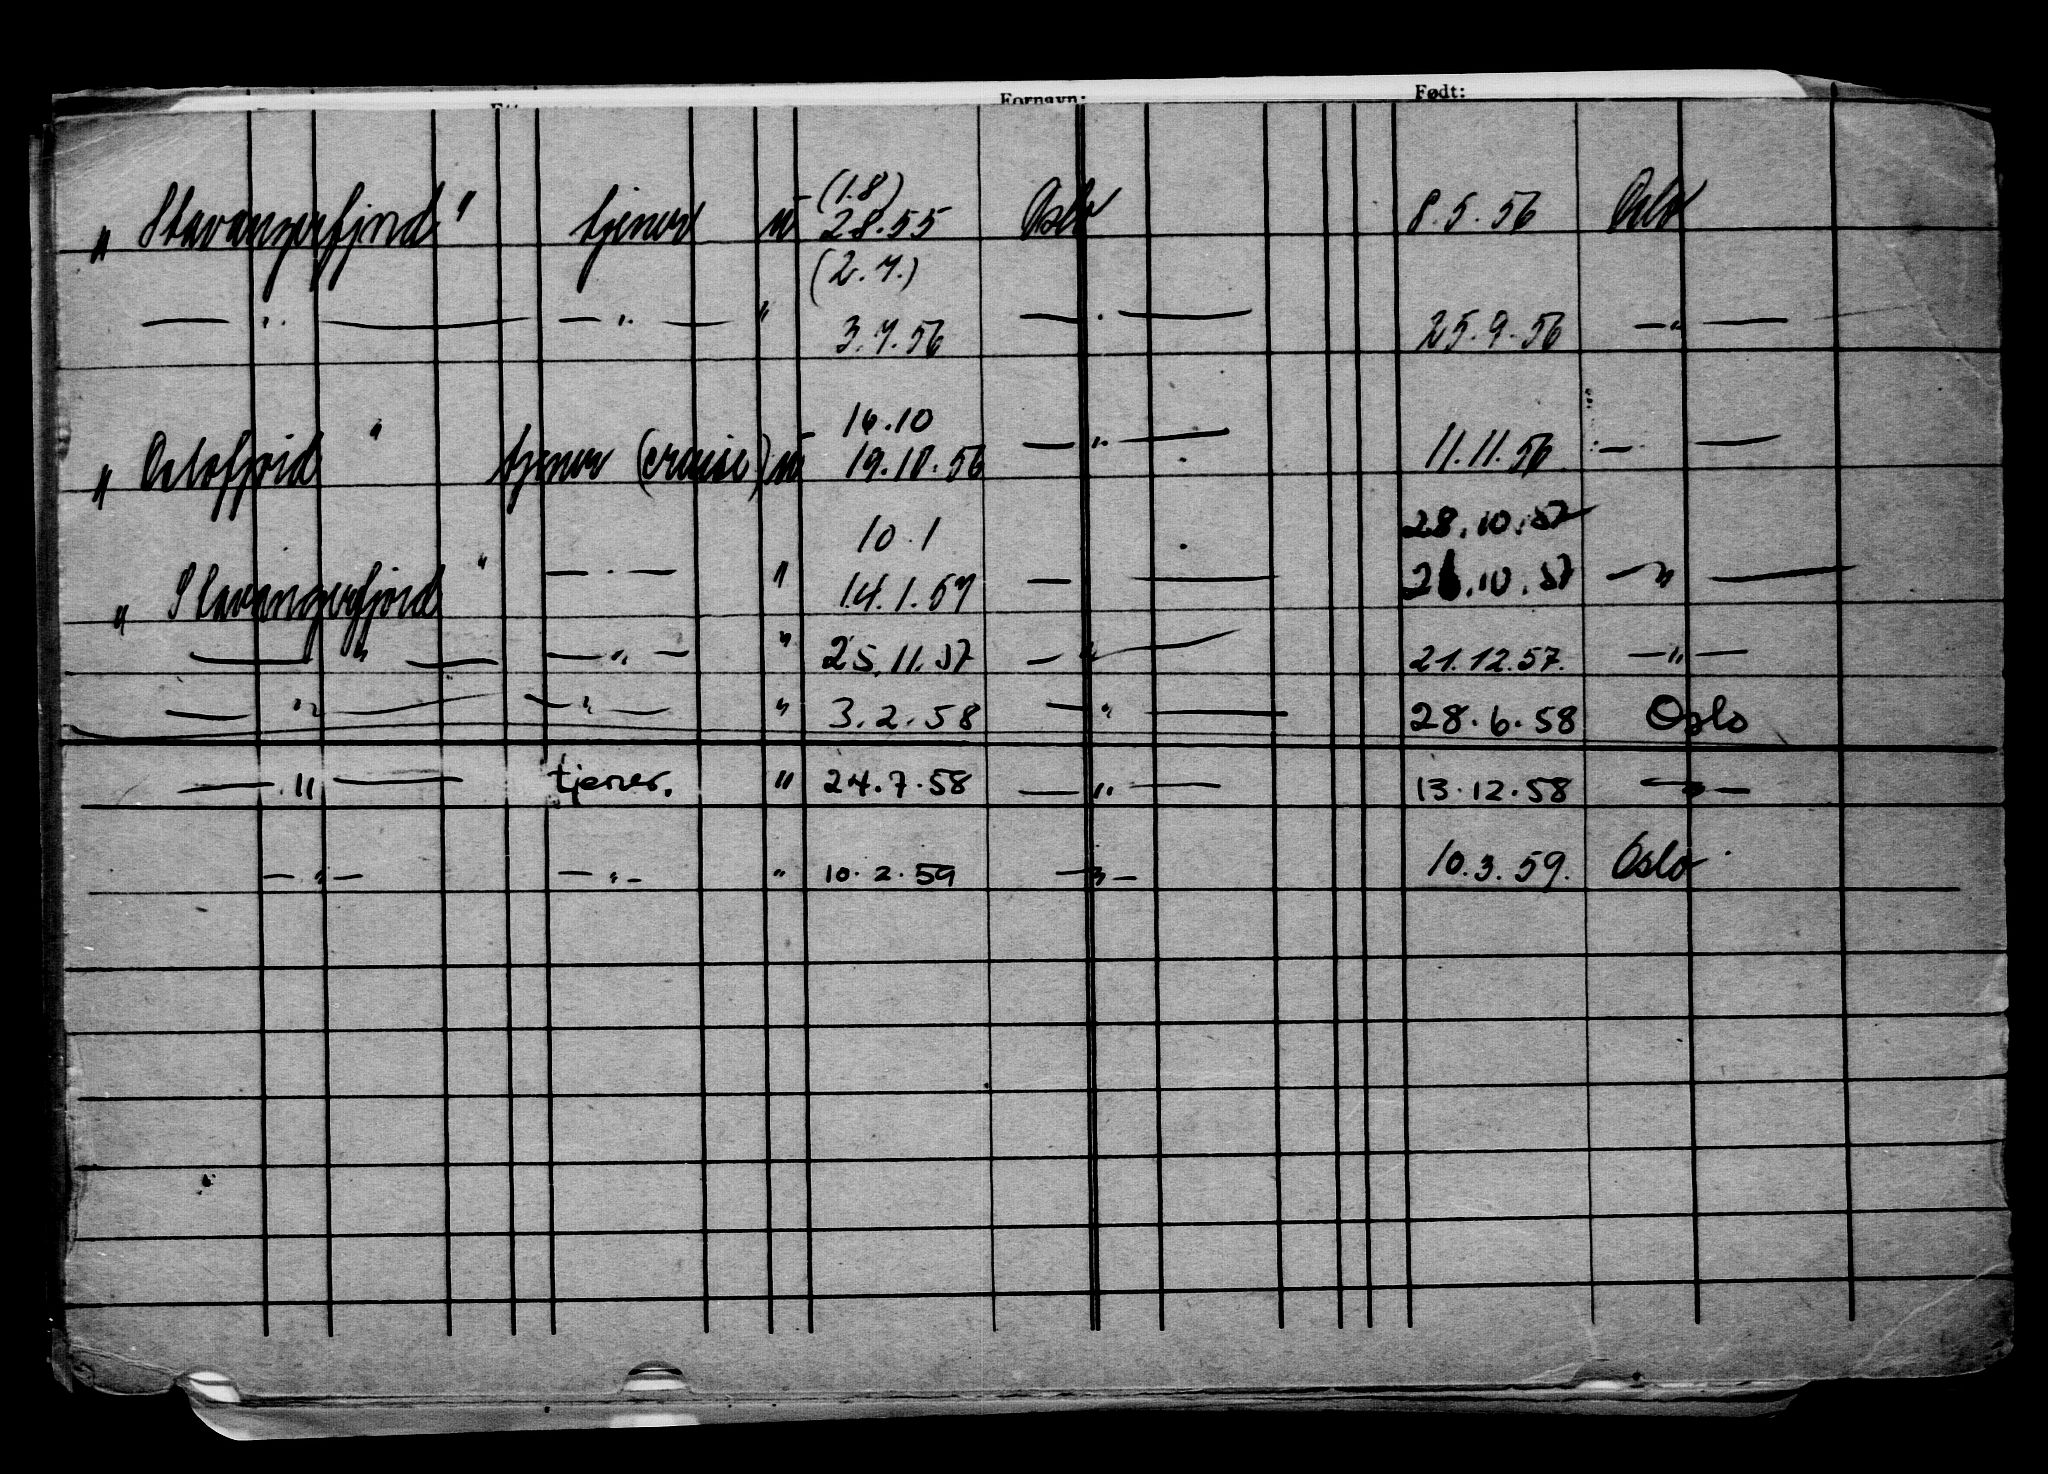 Fornavn: Født:
(1.8)
"Stavangerfjord" tjener 2.8.55 Oslo 8.5.56 Oslo
(2.7.)
— " — — " — " 3.7.56 — " — 25.9.56 — " —
16.10
"Oslofjord" tjener (cruise) 19.10.56 — " — 11.11.56 — —
10.1 28.10.57
"Stavangerfjord" — " — " 14.1.57 — — 26.10.57 — " —
— " — — " — " 25.11.57 — " — 21.12.57. — " —
— " — — " — " 3.2.58 — " — 28.6.58 Oslo
— " — tjener. " 24.7.58 — " — 13.12.58 — " —
— " — — " — " 10.2.59 — " — 10.3.59. Oslo